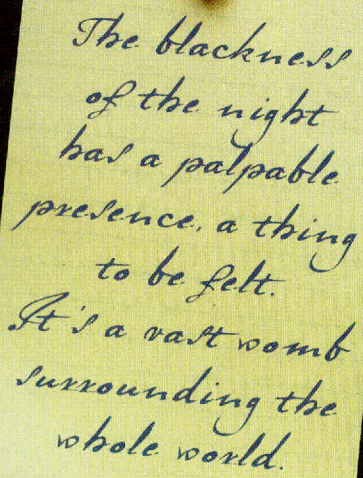 The blackness
of the night
has a palpable
presence, a thing
to be felt.
It's a vast womb
surrounding the
whole world.